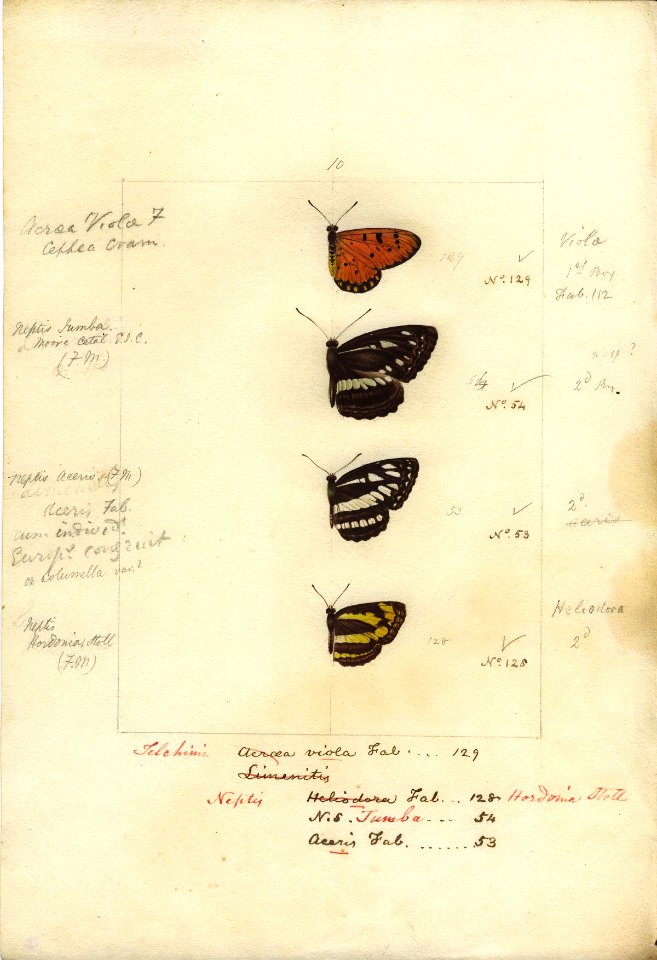 10
Acræa Viola F
Cephea Cram.
129
✓
No. 129
Viola
1st Box
Fab. 112
Neptis Jumba.
Moore Catal. E.I.C.
(F.M.)
54
✓
No. 54
n. 4 ?
2d Box.
Neptis Aceris (F.M)
Aceris Fab.
cum individ.
Europ. congruit
or Columella var.?
53
✓
No. 53
2d.
aceris
Neptis
Hordonia, Stoll
(F.M)
128
✓
No. 128
Heliodora
2d
Telchinia Acræa viola Fab. .... 129
Limenitis
Neptis Heliodora Fab... 128 Hordonia Stoll
N.S. Jumba... 54
Aceris Fab. ....... 53